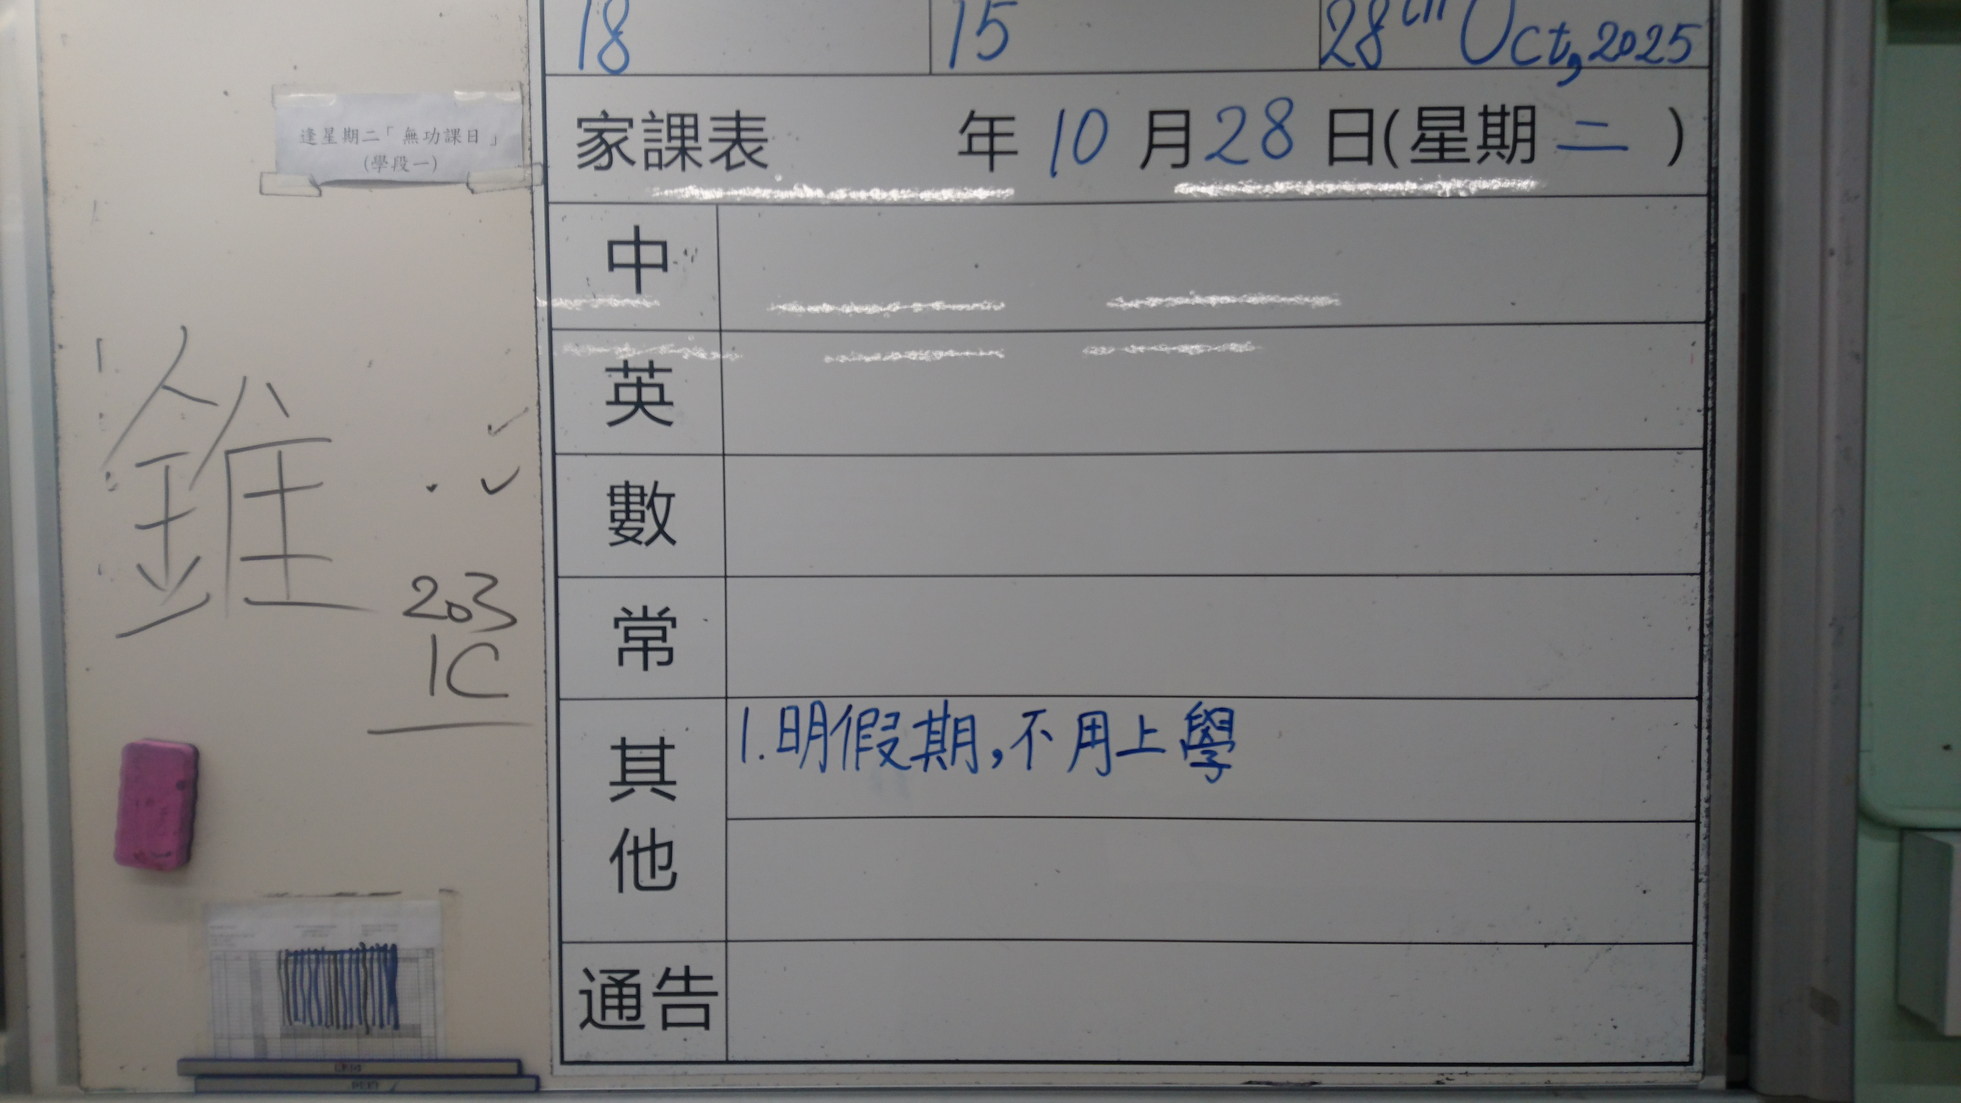 18 15 28th Oct, 2025
逢星期二「無功課日」
(學段一)
家課表 年 10 月 28 日(星期 二 )
中
英
數
常
其他
1. 明假期,不用上學
通告
錐
203
1C